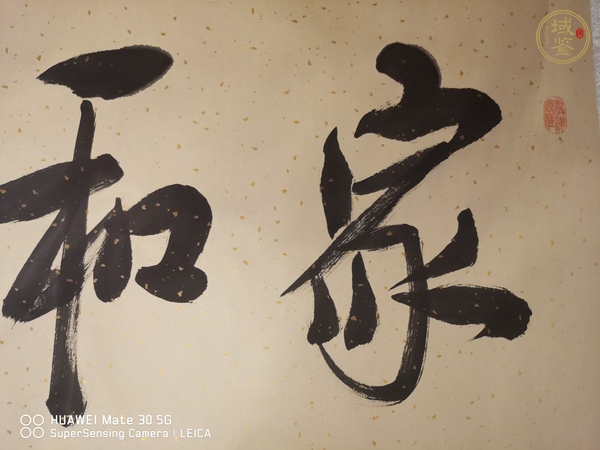 家和
域鉴
HUAWEI Mate 30 5G
SuperSensing Camera | LEICA